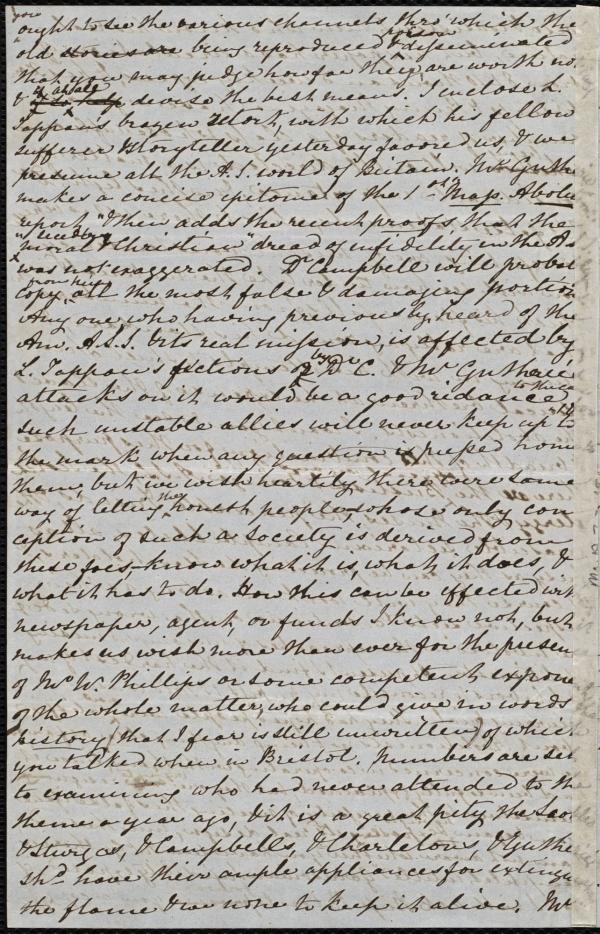 you
ought to see the various channels thro' which the
old stories are being reproduced & disseminated
that you may judge how far they are worth no
& devise the best means. I inclose L.
Tappan's brazen work, with which his fellow
sufferer & storyteller yesterday favored us, & we
presume all the A. S. world of Britain. Mr Guthr
makes a concise epitome of the 1st Map. Abolu
report, & then adds the recent proofs, that the
moral & Christian "dread of infidelity in the As
was not exaggerated. Dr Campbell will probab
from him
copy all the most false & damaging portion
Any one who having previously heard of the
Am. A.S.S. & its real mission, is affected by
L. Tappan's fictions or by Dr C. & Mr Guthrie
attacks on it would be a good ridance to the ca
such unstable allies will never keep up to
the mark when any question is pressed home
them, but we wish heartily there were some
way of letting the honest people, whose only con
ception of such a society is derived from
these foes, know what it is, what it does, &
what it has to do. How this can be effected wit
newspaper, agent, or funds I know not, but
makes us wish more than ever for the presen
of Mr W. Phillips or some competent expone
of the whole matter, who could give in words
history (that I fear is still unwritten) of which
you talked when in Bristol. Numbers are set
to examining who had never attended to th
theme a year ago, & it is a great pity the Sco
& Sturges, & Campbells, & Charletons, & Guthr
shd have their ample appliances for extingu
the flame & we none to keep it alive. Mr